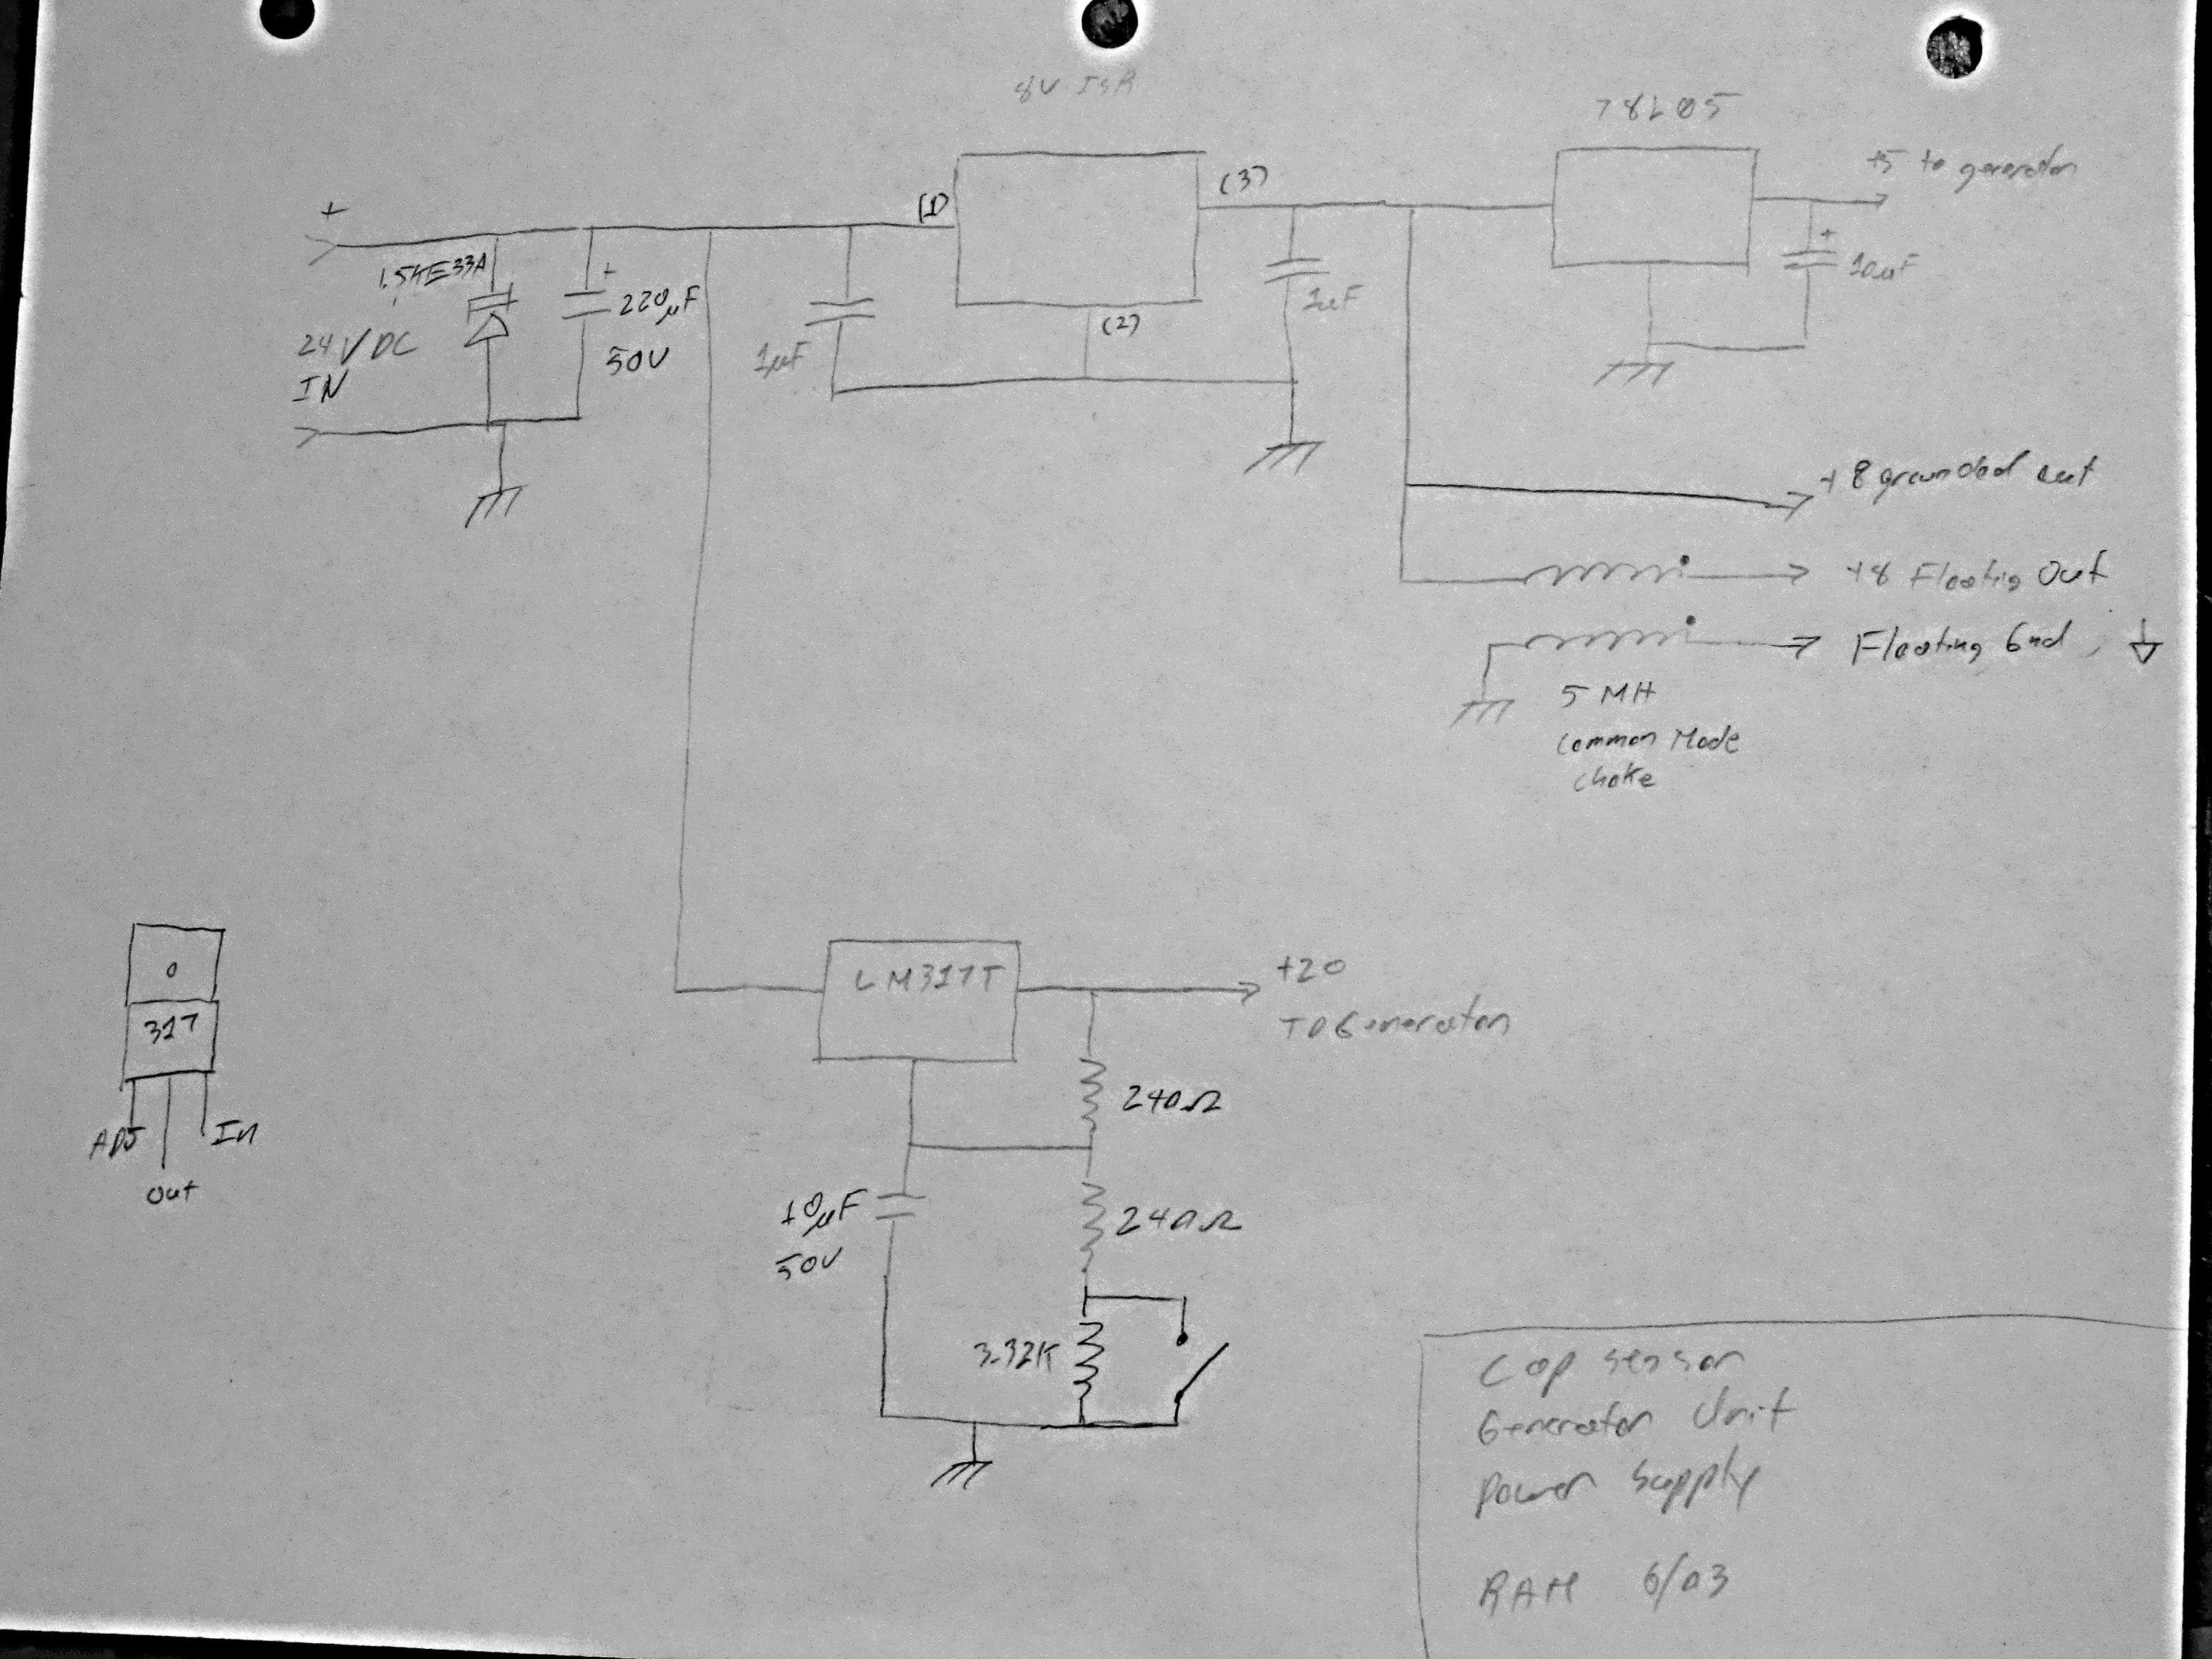 8V ISR
78L05
(1)
(3)
+5 to generator
+
1.5KE33A
+
220µF
50V
24 V DC
IN
1µF
(2)
1uF
+
10uF
+8 grounded out
+8 Floating Out
Floating Gnd,
5 MH
Common Mode
choke
LM317T
+20
TO Generator
317
ADJ
In
Out
240Ω
10µF
50V
240Ω
3.32K
Cap sensor
Generator Unit
Power Supply
RAM 6/03